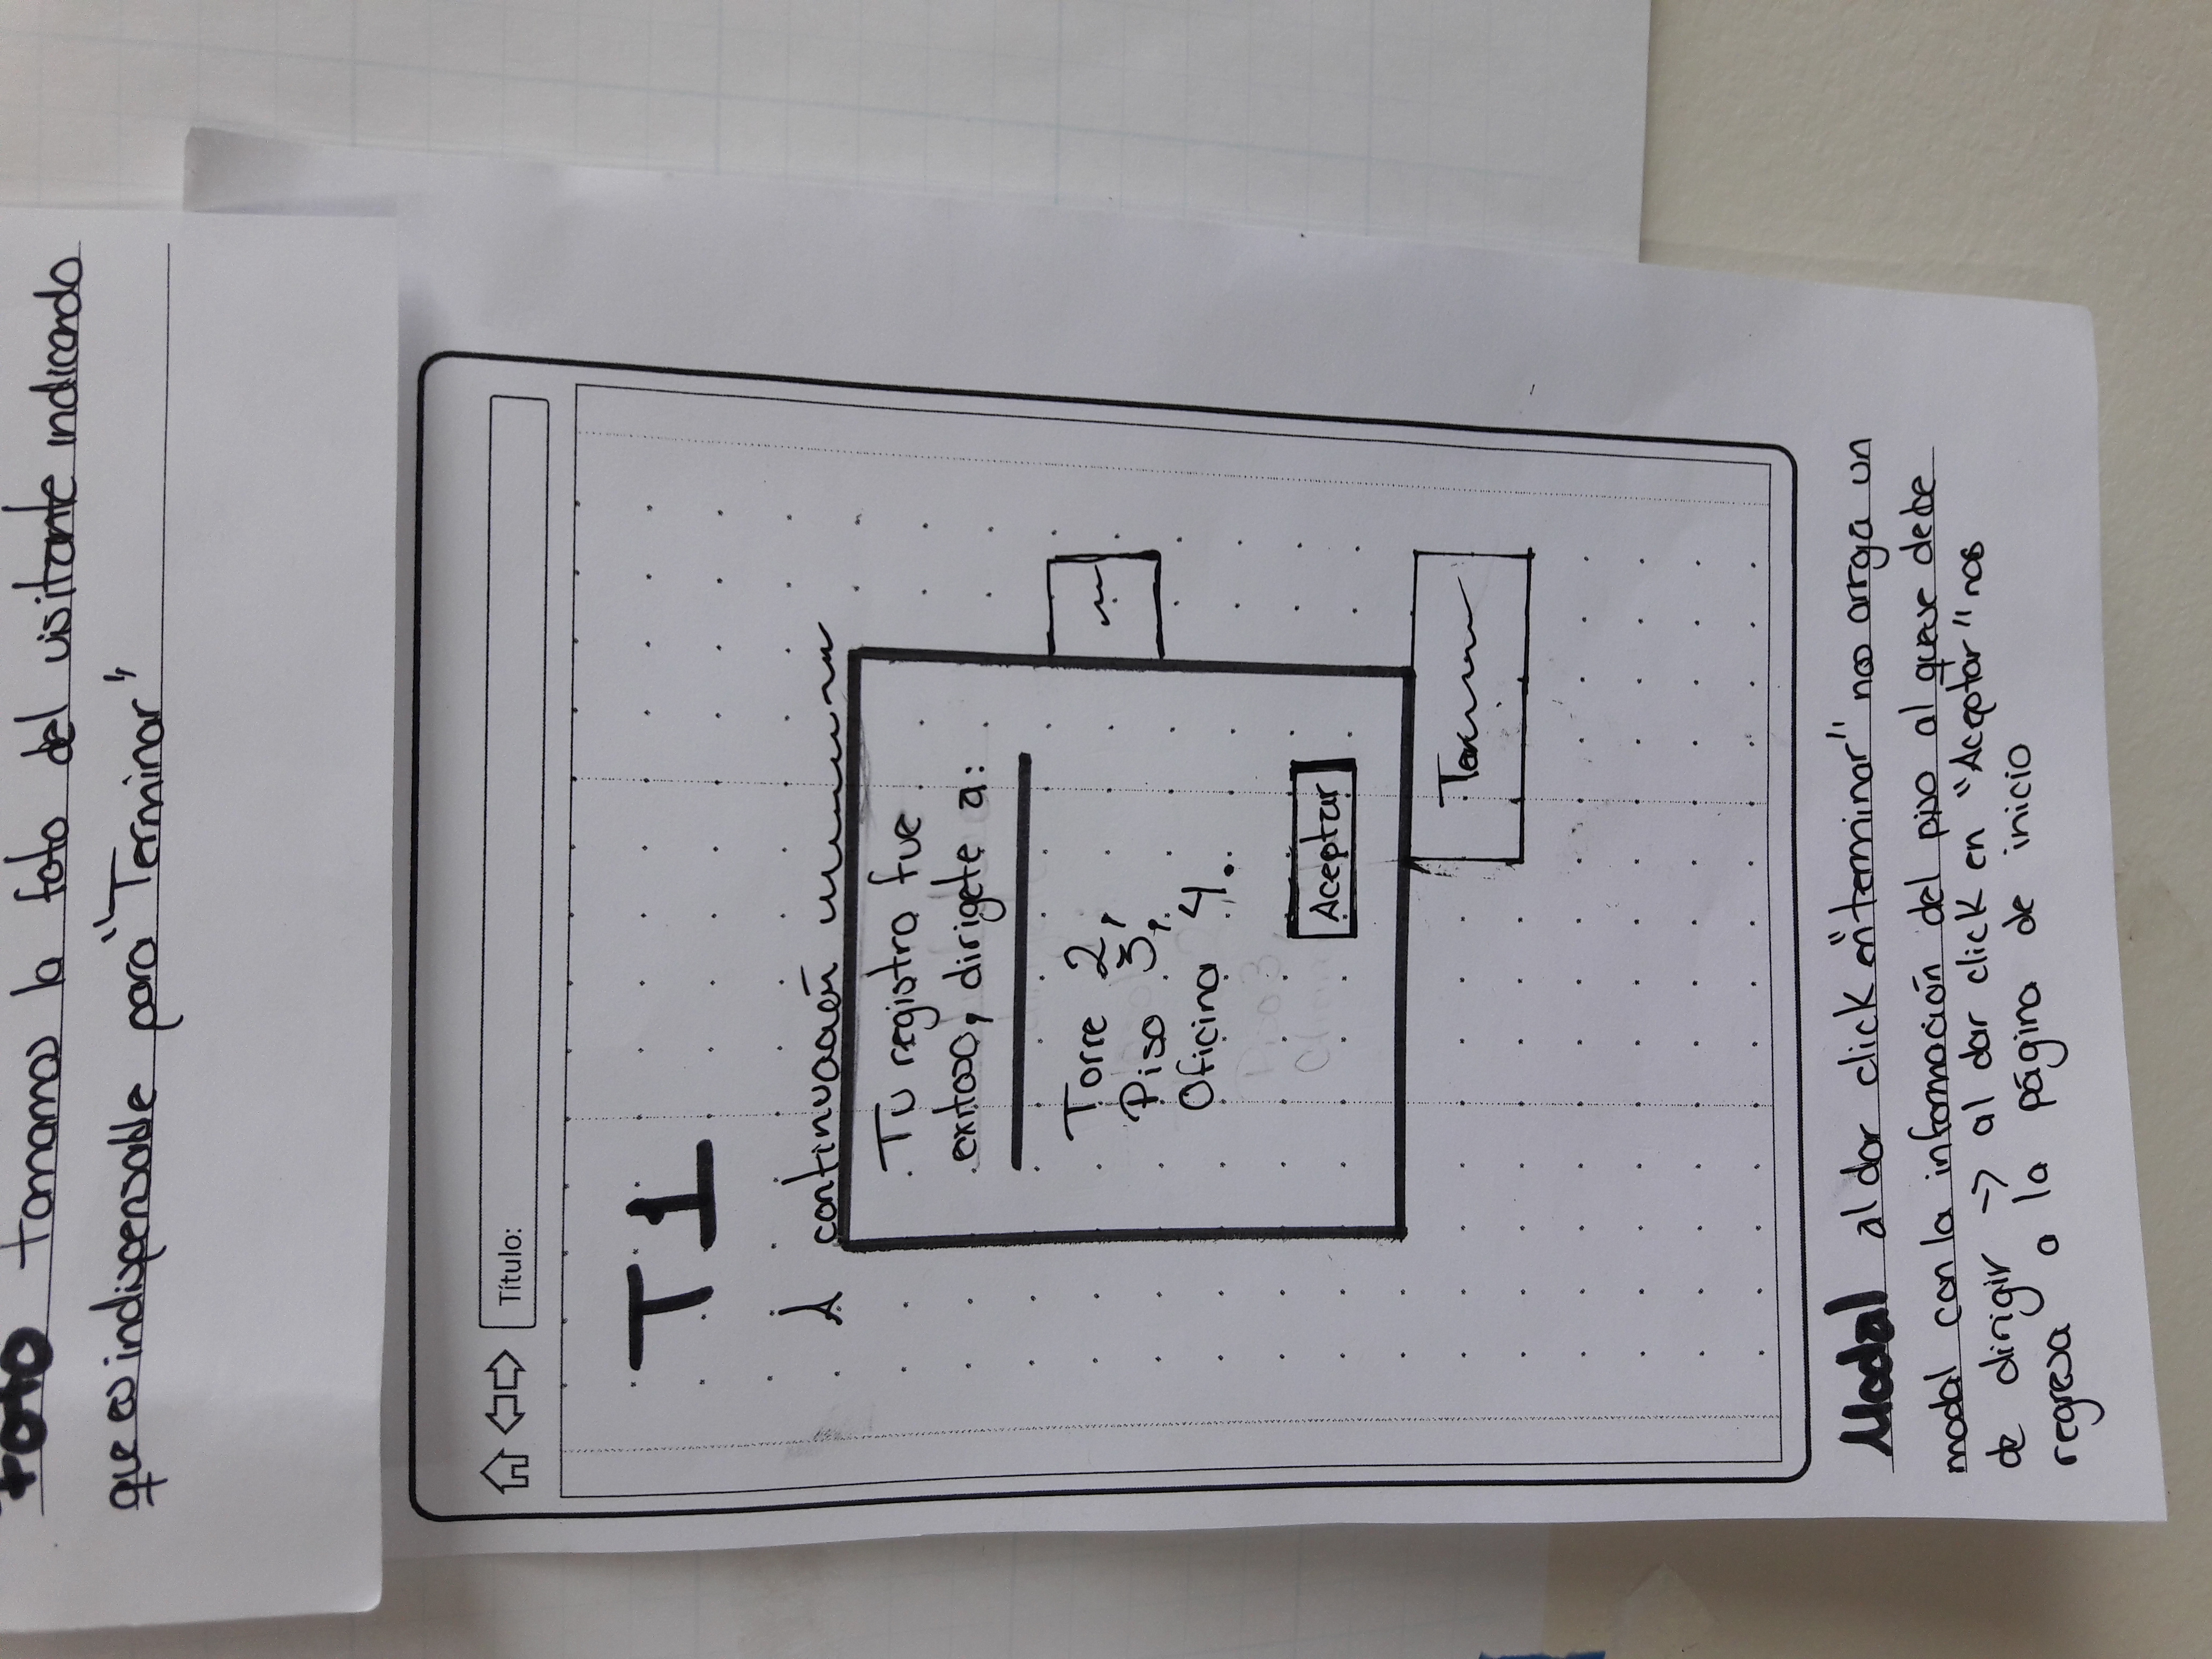 Foto tomamos la foto del visitante indicando
que es indispensable para "Terminar"
Título:
T1
A continuación
Tu registro fue
exitoso, dirigete a:
Torre 2,
Piso 3,
Oficina 4.
Piso 3,
Aceptar
Modal al dar click en "terminar" nos arrga un
modal con la información del piso al que se debe
de dirigir -> al dar click en "Aceptar" nos
regresa a la página de inicio